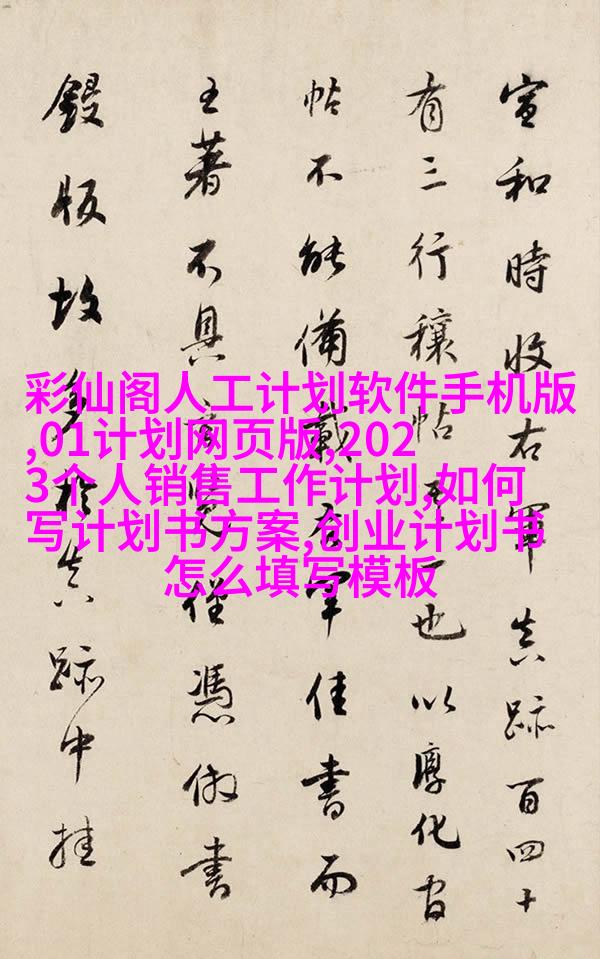 宣和時收右軍真跡百四十
有三行穰帖一也以淳化官
帖不能備載右軍佳書而
王著不具覽僅憑倣書
鋟版故多於真跡中挂
彩仙阁人工计划软件手机版
,01计划网页版,202
3个人销售工作计划,如何
写计划书方案,创业计划书
怎么填写模板